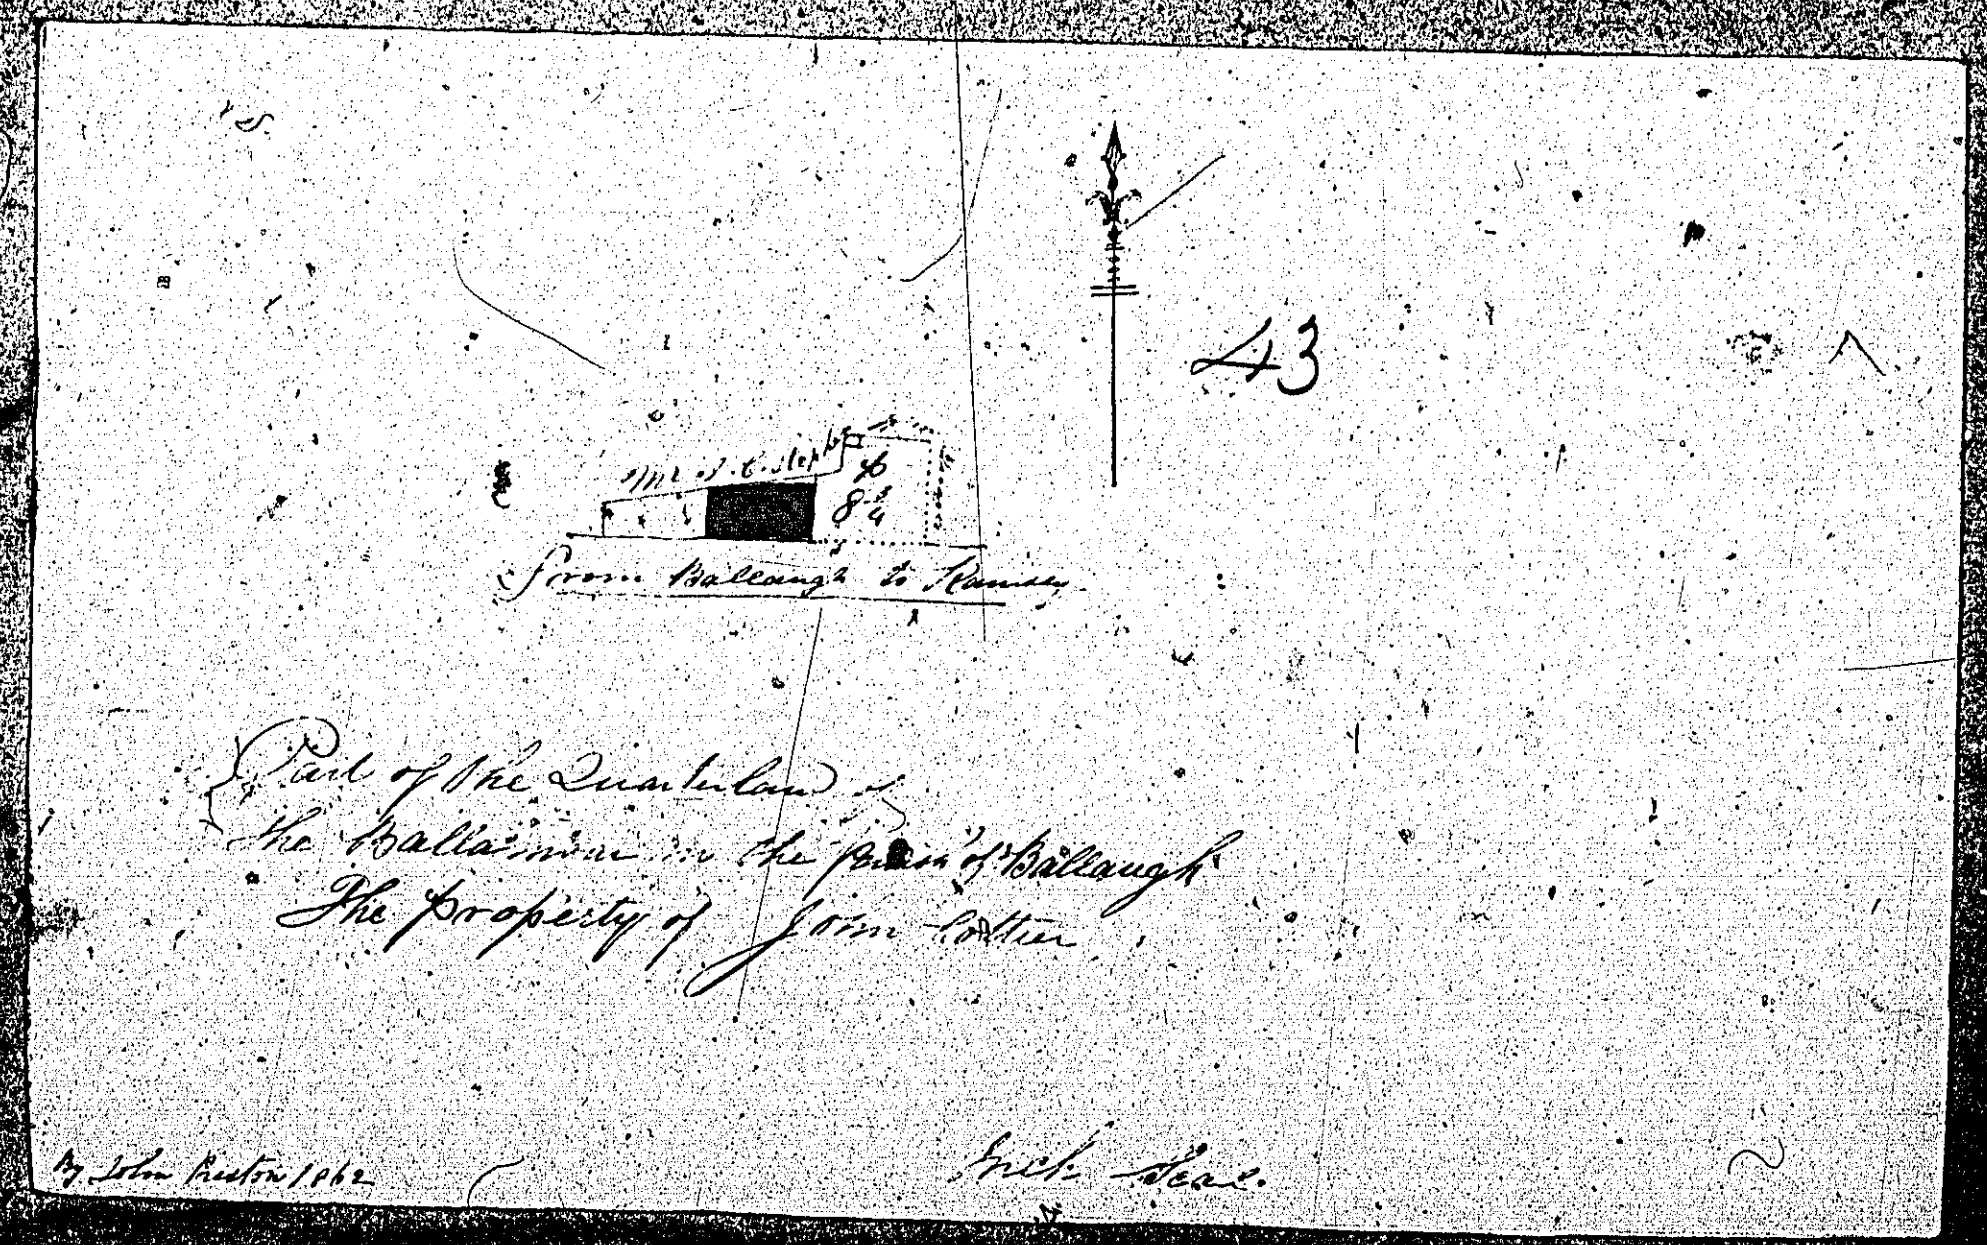 43
Mr J. C. Steph
8 3/4
From Ballaugh to Ramsey
Part of the Quarterland of
the Ballamoar in the parish of Ballaugh
The property of John Cottier
By John Preston 1862
Inch Scale.